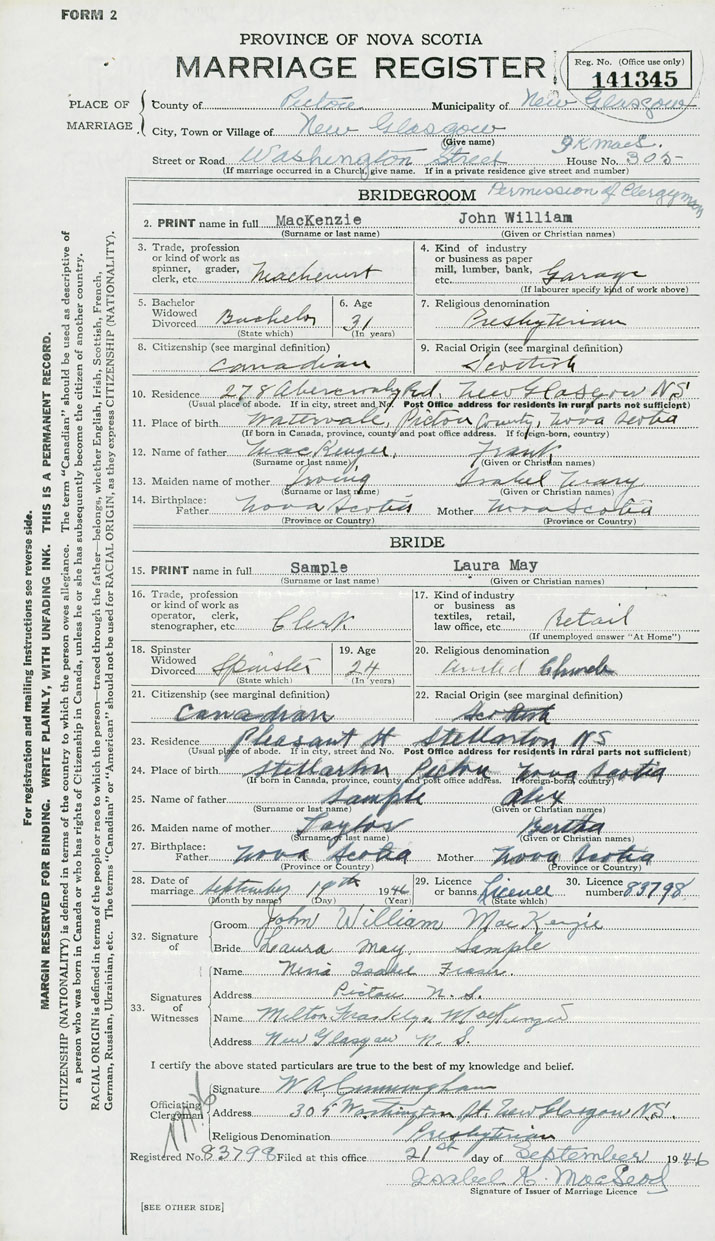 FORM 2
PROVINCE OF NOVA SCOTIA
MARRIAGE REGISTER
Reg. No. (Office use only)
141345
PLACE OF MARRIAGE
County of Pictou Municipality of New Glasgow
City, Town or Village of New Glasgow
(Give name)
I K MacL.
Street or Road Washington Street House No. 305
(If marriage occurred in a Church, give name. If in a private residence give street and number)
Permission of Clergyman
BRIDEGROOM
2. PRINT name in full MacKenzie John William
(Surname or last name) (Given or Christian names)
3. Trade, profession or kind of work as spinner, grader, clerk, etc. Machinist
4. Kind of industry or business as paper mill, lumber, bank, etc. Garage
(If labourer specify kind of work above)
5. Bachelor Widowed Divorced Bachelor
(State which)
6. Age 31
(In years)
7. Religious denomination
Presbyterian
8. Citizenship (see marginal definition)
Canadian
9. Racial Origin (see marginal definition)
Scottish
10. Residence 278 Abercrombie Rd. New Glasgow NS
(Usual place of abode. If in city, street and No. Post Office address for residents in rural parts not sufficient)
11. Place of birth Watervale, Pictou County, Nova Scotia
(If born in Canada, province, county and post office address. If foreign-born, country)
12. Name of father MacKenzie, Frank
(Surname or last name) (Given or Christian names)
13. Maiden name of mother Irving Isabel Mary
(Surname or last name) (Given or Christian names)
14. Birthplace: Father Nova Scotia Mother Nova Scotia
(Province or Country) (Province or Country)
BRIDE
15. PRINT name in full Sample Laura May
(Surname or last name) (Given or Christian names)
16. Trade, profession or kind of work as operator, clerk, stenographer, etc Clerk
17. Kind of industry or business as textiles, retail, law office, etc. Retail
(If unemployed answer "At Home")
18. Spinster Widowed Divorced Spinster
(State which)
19. Age 24
(In years)
20. Religious denomination
United Church
21. Citizenship (see marginal definition)
Canadian
22. Racial Origin (see marginal definition)
Scottish
23. Residence Pleasant St Stellarton NS
(Usual place of abode. If in city, street and No. Post Office address for residents in rural parts not sufficient)
24. Place of birth Stellarton Pictou Nova Scotia
(If born in Canada, province, county and post office address. If foreign-born, country)
25. Name of father Sample Alex
(Surname or last name) (Given or Christian names)
26. Maiden name of mother Taylor Bertha
(Surname or last name) (Given or Christian names)
27. Birthplace: Father Nova Scotia Mother Nova Scotia
(Province or Country) (Province or Country)
28. Date of marriage September 19th 1946
(Month by name) (Day) (Year)
29. Licence or banns Licence
(State which)
30. Licence number 83798
32. Signature of
Groom John William MacKenzie
Bride Laura May Sample
33. Signatures of Witnesses
Name Nina Isabel
Address Pictou N. S.
Name Milton Franklyn MacKenzie
Address New Glasgow N. S.
I certify the above stated particulars are true to the best of my knowledge and belief.
Officiating Clergyman
Signature W A Cunningham
Address 305 Washington St. New Glasgow N.S.
Religious Denomination Presbyterian
Registered No. 83798 Filed at this office 21st day of September 1946
Isabel K. MacLeod
Signature of Issuer of Marriage Licence
[SEE OTHER SIDE]
For registration and mailing instructions see reverse side.
MARGIN RESERVED FOR BINDING. WRITE PLAINLY, WITH UNFADING INK. THIS IS A PERMANENT RECORD.
CITIZENSHIP (NATIONALITY) is defined in terms of the country to which the person owes allegiance. The term "Canadian" should be used as descriptive of
a person who was born in Canada or who has rights of Citizenship in Canada, unless he or she has subsequently become the citizen of another country.
RACIAL ORIGIN is defined in terms of the people or race to which the person—traced through the father—belongs, whether English, Irish, Scottish, French,
German, Russian, Ukrainian, etc. The terms "Canadian" or "American" should not be used for RACIAL ORIGIN, as they express CITIZENSHIP (NATIONALITY).